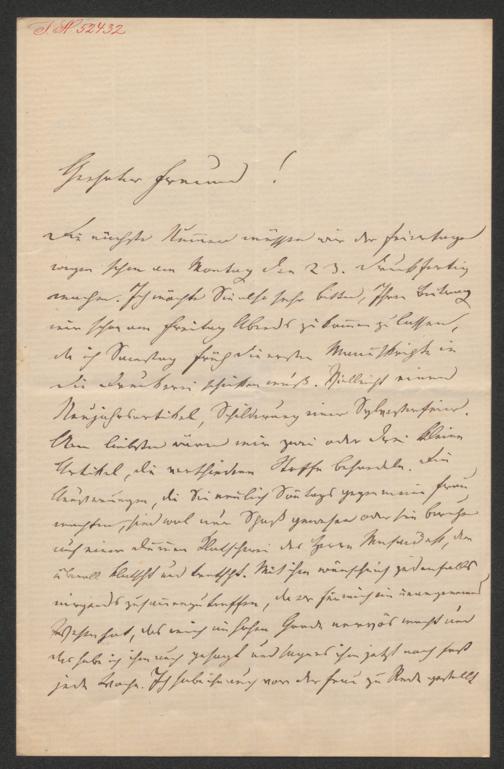 I. N. 52432
Geehrter Freund!
Die nächste Nummer müssen wir der Feiertage
wegen schon am Montag den 23. druckfertig
machen. Ich möchte Sie also sehr bitten, Ihren Beitrag
mir schon am Freitag Abends zukommen zu lassen,
da ich Samstag früh die ersten Manuskripte in
die Druckerei schicken muß. Vielleicht einen
Neujahrsartikel, Schilderung einer Sylvesterfeier.
Am liebsten wären mir zwei oder drei kleine
Artikel, die verschiedene Stoffe behandeln. Die
Äußerungen, die Sie neulich Sonntags gegen meine Frau
machten, sind wol nur Spaß gewesen oder sie beruhen
auf einer dummen Klatscherei des Herrn, der
überall klatscht und tratscht. Mit ihm wünsche ich jedenfalls
nirgends zusammenzutreffen, da er für mich ein unangenehmes
Wesen hat, das mich im hohen Grade nervös macht und
das habe ich ihm auch gesagt und sage es ihm jetzt noch fast
jede Woche. Ich habe ihn auch vor der Frau zu Rede gestellt